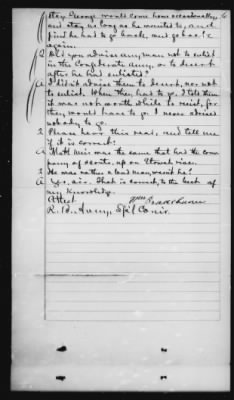 they George would come home occasionally,
and stay as long as he wanted to, and
find he had to go back, and go back
again.
Q Did you advise any man not to enlist
in the Confederate Army, or to desert
after he had enlisted?
A I did it advise them to desert, nor not
to enlist. When they had to go I told them
it was not worth while to resist, for
they would have to go. I never advised
nobody to go.
Q Please have this read, and tell me
if it is correct?
A Matt was the same that had the com
pany of scouts, up on river.
Q He was rather a bad man, wasn't he?
A Yes, sir. That is correct, to the best of
my knowledge.
Attest Wm
R. B. Spl Comr.